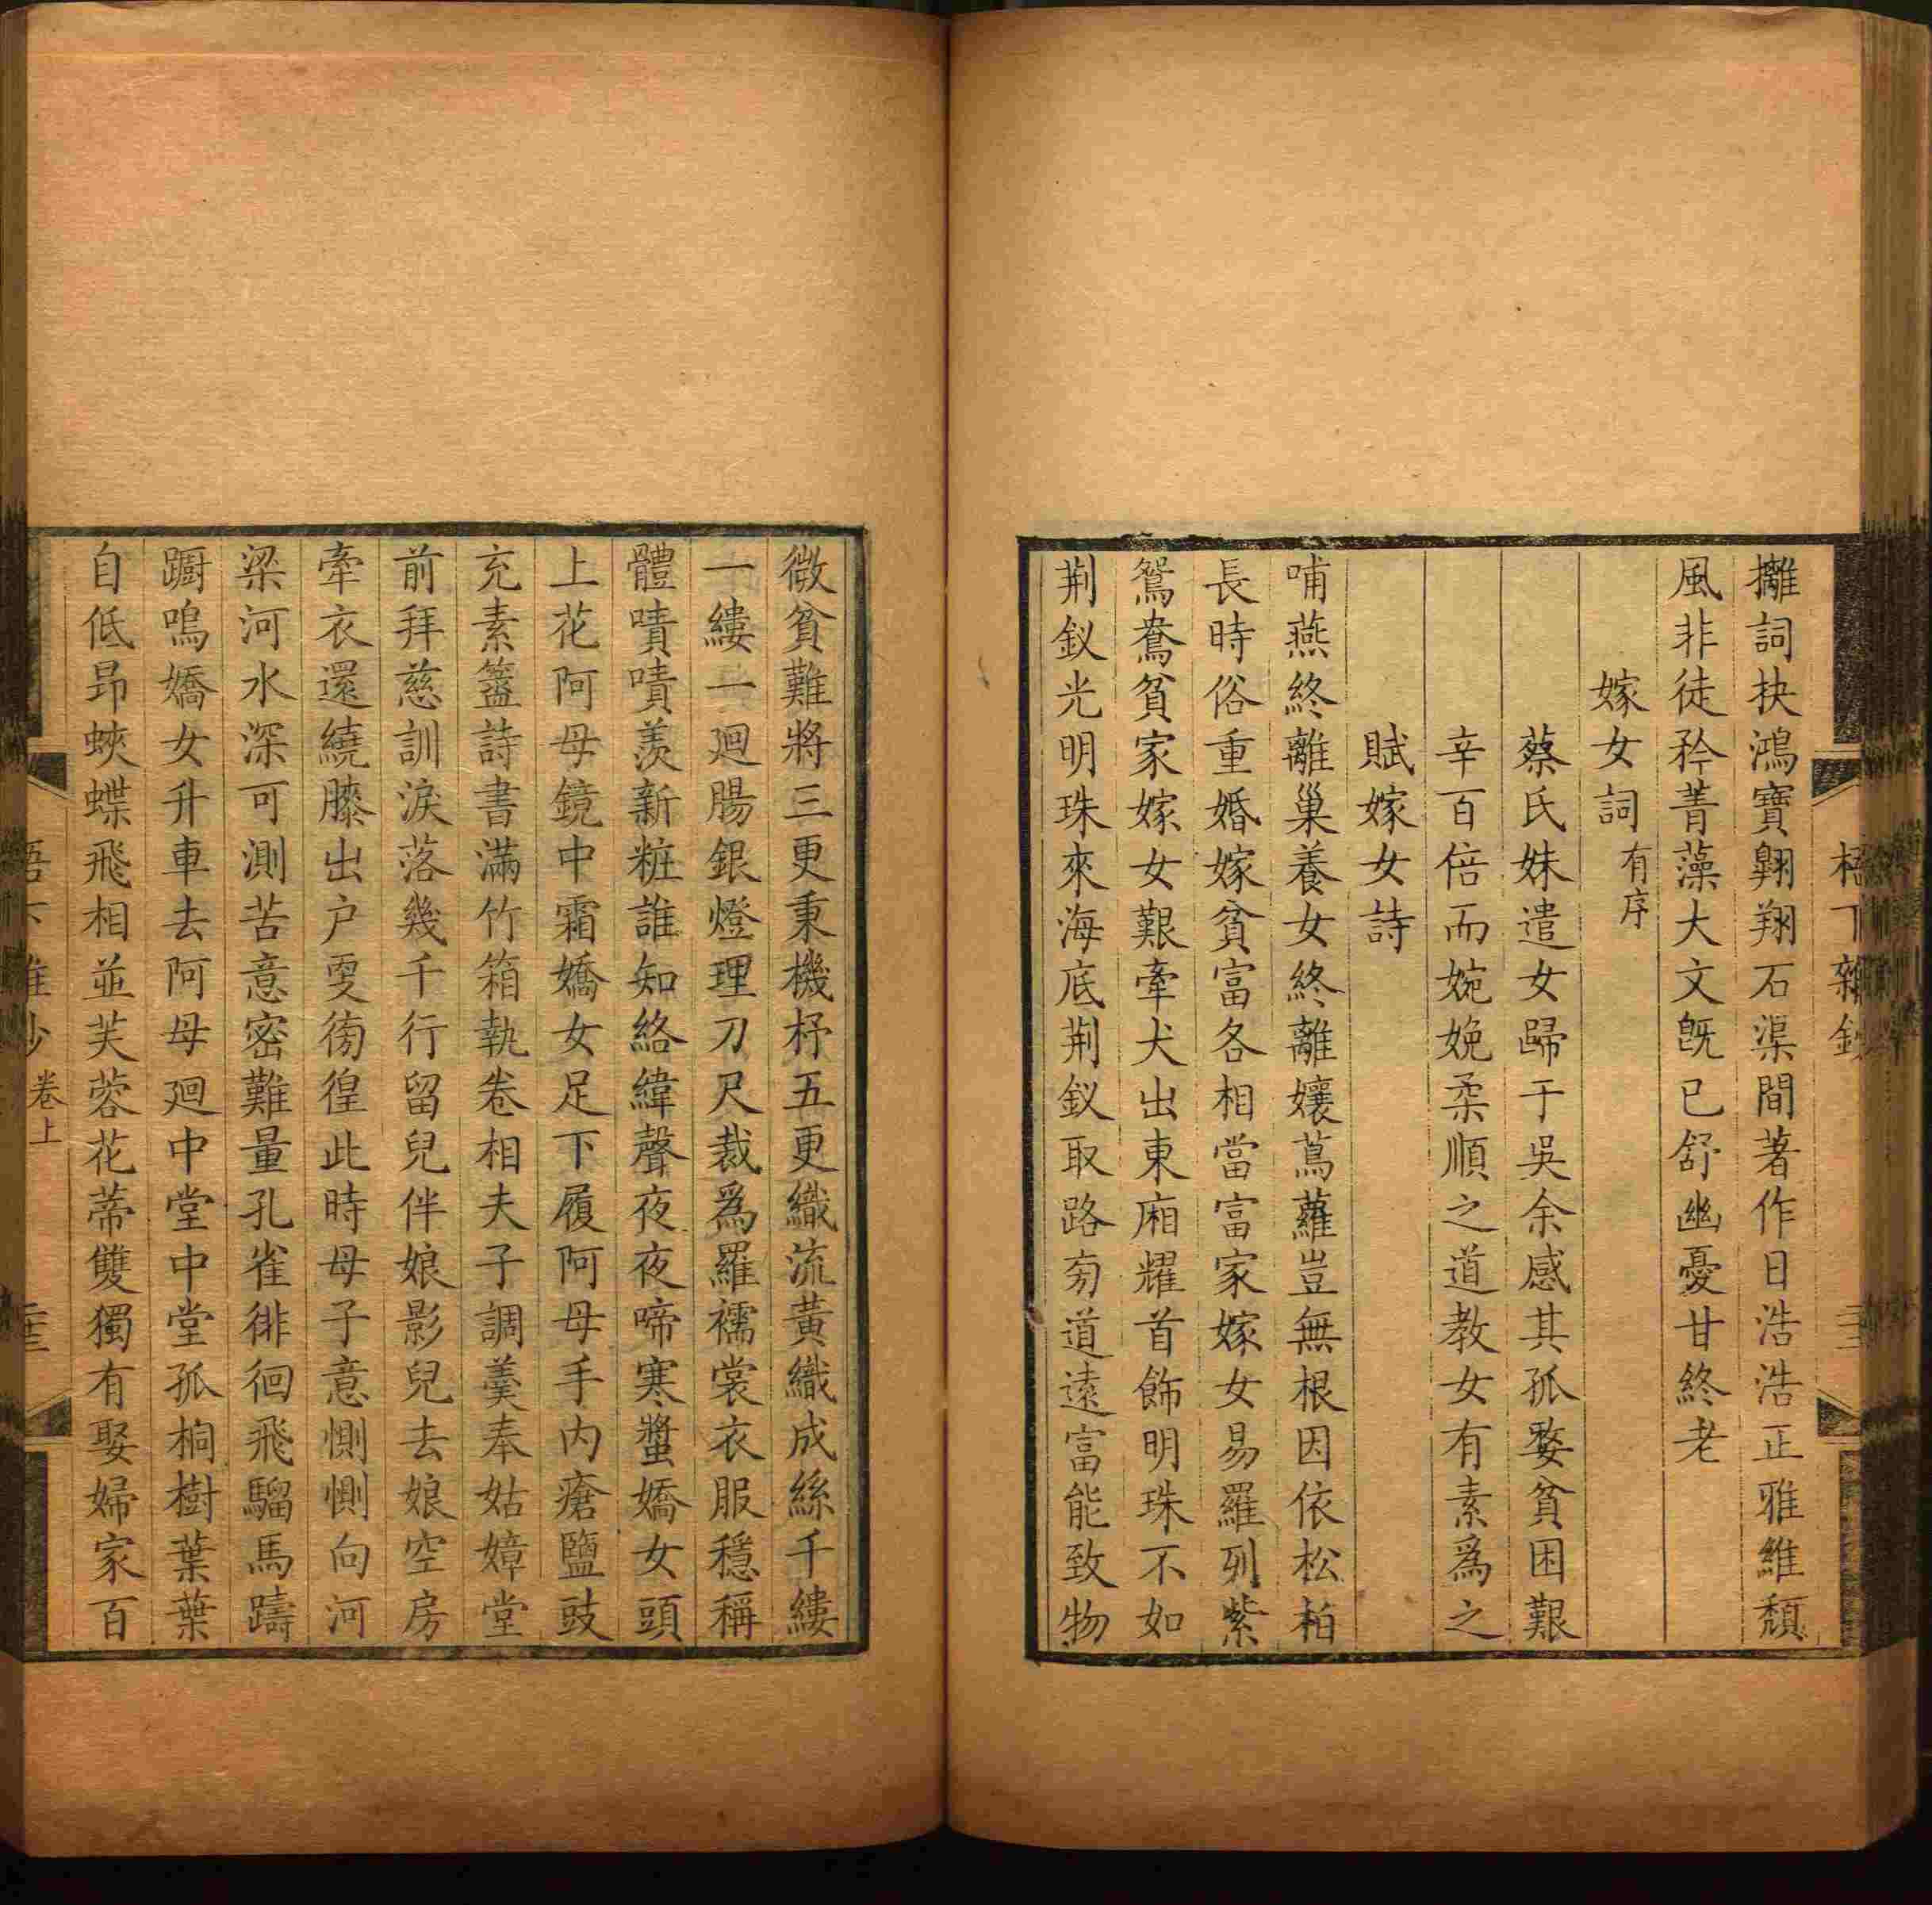 擿詞抉鴻寶翺翔石渠間著作日浩浩正雅維頹
風非徒矜菁藻大文旣已舒幽憂甘終老
嫁女詞有序
蔡氏妹遣女歸于吳余感其孤嫠貧困艱
辛百倍而婉娩柔順之道教女有素爲之
賦嫁女詩
哺燕終離巢養女終離孃蔦蘿豈無根因依松柏
長時俗重婚嫁貧富各相當富家嫁女易羅列紫
鴛鴦貧家嫁女艱牽犬出東廂耀首飾明珠不如
荆釵光明珠來海底荆釵取路旁道遠富能致物
微貧難將三更秉機杼五更織流黃織成絲千縷
一縷一廻腸銀燈理刀尺裁爲羅襦裳衣服穩稱
體嘖嘖羨新粧誰知絡緯聲夜夜啼寒螿嬌女頭
上花阿母鏡中霜嬌女足下履阿母手內瘡鹽豉
充素簋詩書滿竹箱執卷相夫子調羹奉姑嫜堂
前拜慈訓淚落幾千行留兒伴娘影兒去娘空房
牽衣還繞膝出户更徬徨此時母子意惻惻向河
梁河水深可測苦意密難量孔雀徘徊飛騮馬躊
躕鳴嬌女升車去阿母廻中堂中堂孤桐樹葉葉
自低昂蛺蝶飛相並芙蓉花蒂雙獨有娶婦家百
卷上